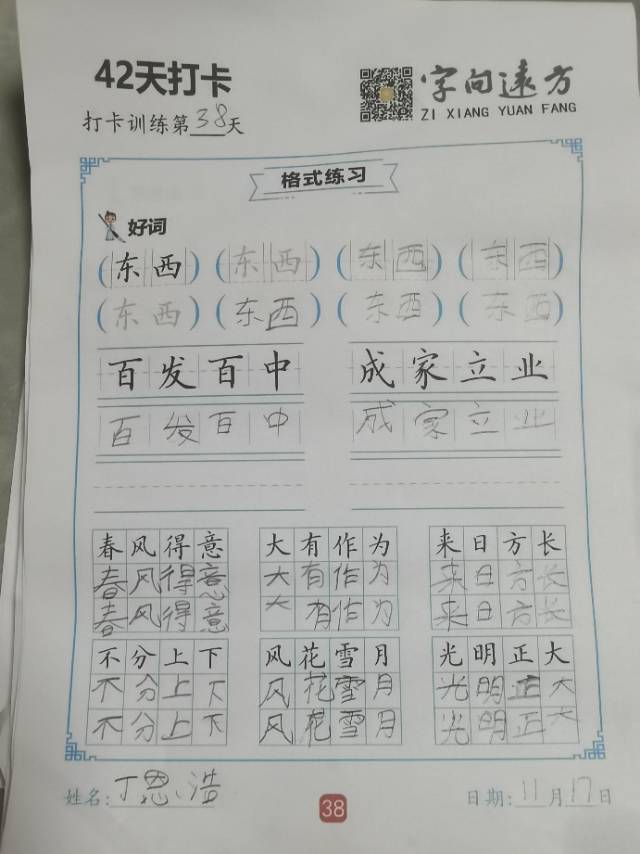 42天打卡
字向遠方
ZI XIANG YUAN FANG
打卡训练第38天
格式练习
好词
(东西) (东西) (东西) (东西)
(东西) (东西) (东西) (东西)
百发百中 成家立业
百发百中 成家立业
春风得意 大有作为 来日方长
春风得意 大有作为 来日方长
春风得意 大有作为 来日方长
不分上下 风花雪月 光明正大
不分上下 风花雪月 光明正大
不分上下 风花雪月 光明正大
姓名:丁恩浩
38
日期:11月17日